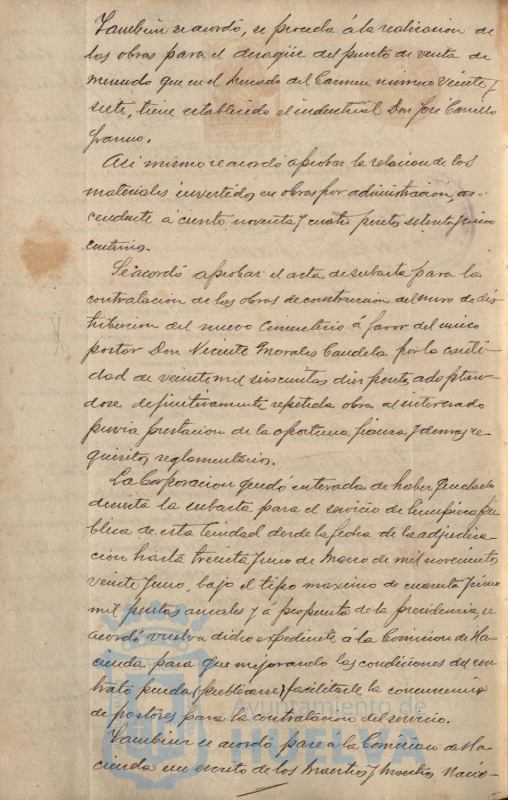 Tambien se acordó, se proceda á la realizacion de
las obras para el desagüe del puesto de venta de
menudo que en el Mercado del Carmen número veinte y
siete, tiene establecido el industrial Don José Carrillo
Franco.
Asi mismo se acordó aprobar la relacion de los
materiales invertidos en obras por administracion, as-
cendente á ciento noventa y cuatro pesetas setenta y cinco
centimos.
Se acordó aprobar el acta de subasta para la
contratacion de las obras de construccion del muro de dis-
tribucion del nuevo Cementerio á favor del unico
postor Don Vicente Morales Candela por la canti-
dad de veinte mil seiscientas diez pesetas, adoptan-
dose definitivamente repetida obra al interesado
previa prestacion de la oportuna fianza y demas re-
quisitos reglamentarios.
La Corporacion quedó enterada de haber quedado
desierta la subasta para el servicio de limpieza pú-
blica de esta Ciudad desde la fecha de la adjudica-
cion hasta treinta y uno de Marzo de mil novecientos
veinte y uno, bajo el tipo maximo de cuarenta y cinco
mil pesetas anuales y á propuesta de la presidencia, se
acordó vuelva dicho expediente á la Comision de Ha-
cienda para que mejorando las condiciones del con-
trato pueda (publicarse) facilitarle la concurrencia
de postores para la contratacion del servicio.
Tambien se acordó pase a la Comision de Ha-
cienda un escrito de los Maestros y Maestras Nacio-
Ayuntamiento de
HUELVA